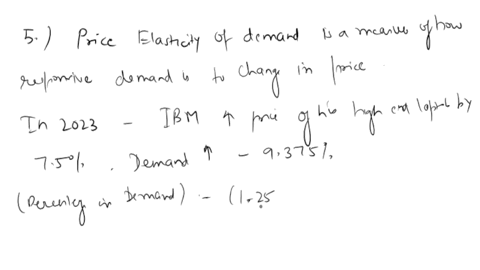 5.) Price Elasticity of demand is a measure of how
responsive demand is to change in price
In 2023 - IBM ↑ price of his high end laptop by
7.5%. Demand ↑ - 9.375%.
( in Demand) - (1.25